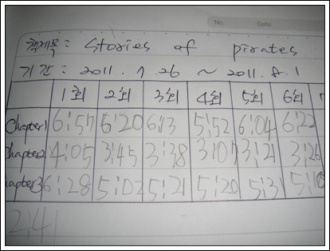 No. Date.
책제목: Stories of pirates
기간: 2011. 7. 26 ~ 2011. 8. 1
1회 2회 3회 4회 5회 6회
Chapter1 6:57 6:20 6:13 5:52 6:04 6:22
Chapter2 4:05 3:45 3:38 3:07 3:21 3:26
Chapter3 6:28 5:02 5:21 5:20 5:31 5:10